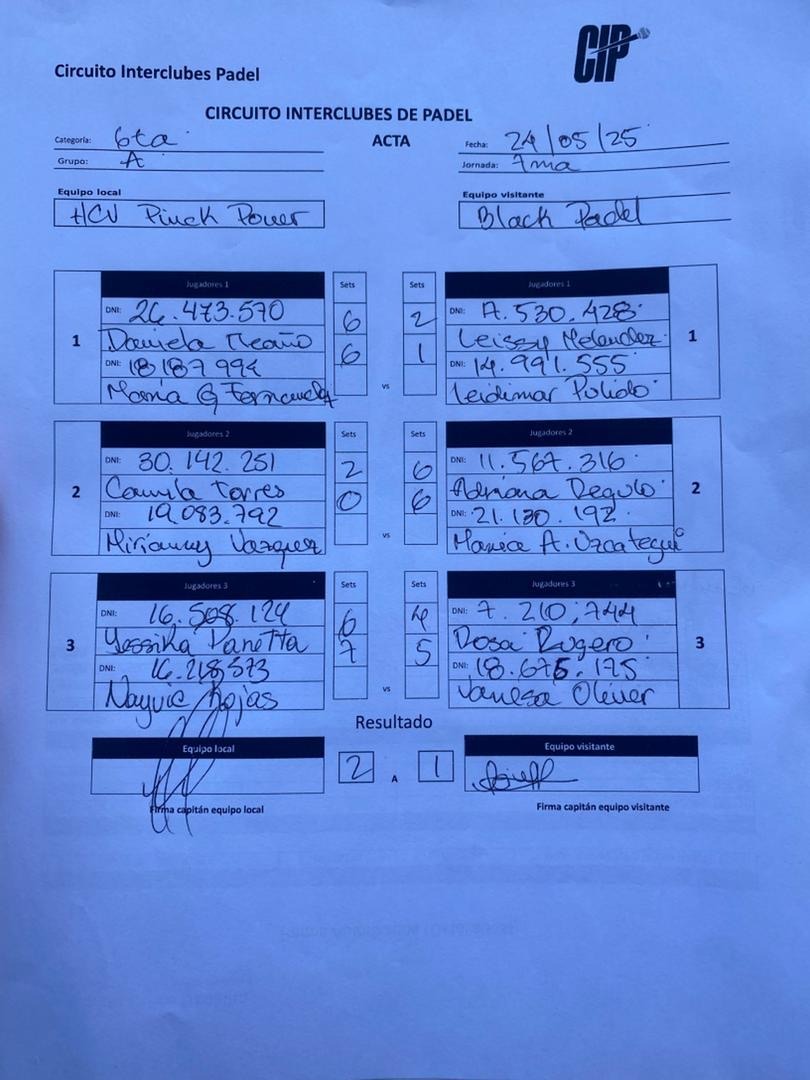 CIP
Circuito Interclubes Padel
CIRCUITO INTERCLUBES DE PADEL
ACTA
Categoría: 6ta
Fecha: 24/05/25
Grupo: A
Jornada: 7ma
Equipo local
Equipo visitante
HCV Pinck Power
Black Padel
Jugadores 1 Sets
Sets Jugadores 1
1
DNI: 26.473.570 6
2 DNI: 530.428
Daniela 6
1 Leissy Melendez
DNI: 18187994
DNI: 14.991.555
María G Fernandez
Leidimar Pulido
vs
1
Jugadores 2 Sets
Sets Jugadores 2
2
DNI: 30.142.251 2
6 DNI: 11.567.316
Camila Torres 0
6 Adriana Regulo
DNI: 19.083.792
DNI: 21.130.192
Mirianny Vazquez
María A. Uzcategui
vs
2
Jugadores 3 Sets
Sets Jugadores 3
3
DNI: 16.508.124 6
4 DNI: 7.210.744
Yessika Panetta 7
5 Rosa Rugero
DNI: 16.218.573
DNI: 18.675.175
Nayvic Rojas
Vanesa Oliver
vs
3
Resultado
Equipo local
2 A 1
Equipo visitante
Firma capitán equipo local
Firma capitán equipo visitante